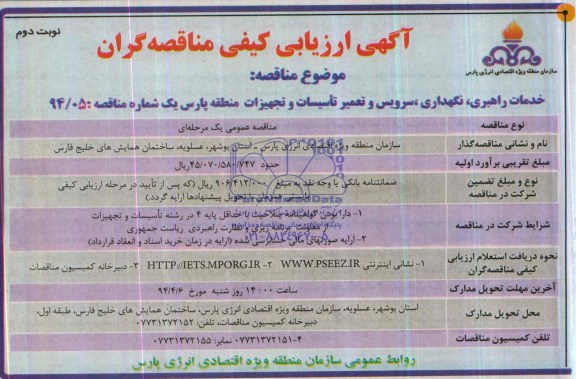 نوبت دوم
آگهی ارزیابی کیفی مناقصه‌گران
سازمان منطقه ویژه اقتصادی انرژی پارس
موضوع مناقصه:
خدمات راهبری، نگهداری ،سرویس و تعمیر تأسیسات و تجهیزات منطقه پارس یک شماره مناقصه :۹۴/۰۵
نوع مناقصه
مناقصه عمومی یک مرحله‌ای
نام و نشانی مناقصه‌گذار
سازمان منطقه ویژه اقتصادی انرژی پارس - استان بوشهر، عسلویه، ساختمان همایش های خلیج فارس
مبلغ تقریبی برآورد اولیه
حدود ۴۵/۰۷۰/۵۸۰/۷۴۷ریال
نوع و مبلغ تضمین شرکت در مناقصه
ضمانتنامه بانکی یا وجه نقد به مبلغ ۹۰۶/۴۱۲/۰۰۰ ریال (که پس از تأیید در مرحله ارزیابی کیفی
تحویل پیشنهادها ارایه گردد.)
شرایط شرکت در مناقصه
۱- دارا بودن گواهینامه صلاحیت با حداقل پایه ۴ در رشته تأسیسات و تجهیزات
از معاونت برنامه ریزی و نظارت راهبردی ریاست جمهوری
۲-ارایه صورتهای مالی حسابرسی شده (ارایه در زمان خرید اسناد و انعقاد قرارداد)
نحوه دریافت استعلام ارزیابی کیفی مناقصه‌گران
۱- نشانی اینترنتی WWW.PSEEZ.IR ۲- HTTP://IETS.MPORG.IR ۳- دبیرخانه کمیسیون مناقصات
آخرین مهلت تحویل مدارک
ساعت ۱۴:۰۰ روز شنبه مورخ ۹۴/۴/۶
محل تحویل مدارک
استان بوشهر، عسلویه، سازمان منطقه ویژه اقتصادی انرژی پارس، ساختمان همایش های خلیج فارس، طبقه اول،
دبیرخانه کمیسیون مناقصات، تلفن: ۰۷۷۳۱۳۷۲۱۵۲
تلفن کمیسیون مناقصات
۰۷۷۳۱۳۷۲۱۵۱-۴ نمابر: ۰۷۷۳۱۳۷۲۱۵۵
روابط عمومی سازمان منطقه ویژه اقتصادی انرژی پارس